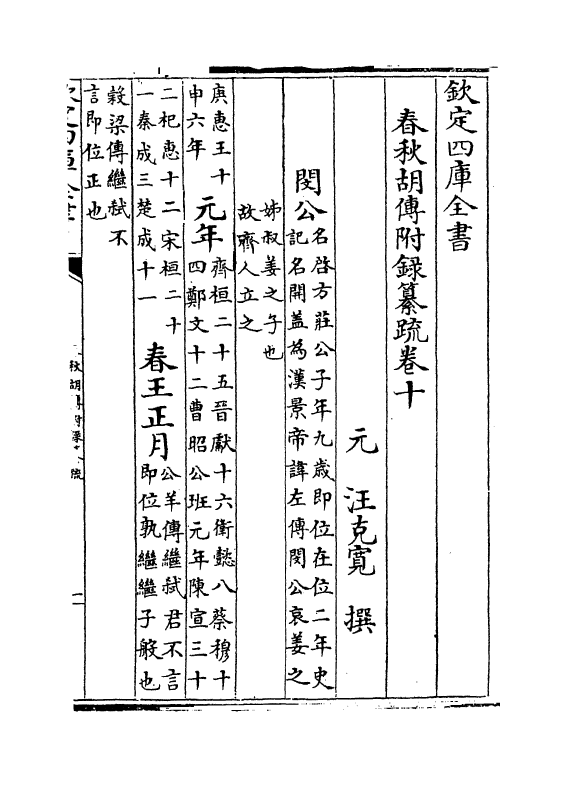 欽定四庫全書
春秋胡傳附録纂䟽卷十
元 汪克寛 撰
閔公
名啓方莊公子年九歳即位在位二年史
記名開盖為漢景帝諱左傳閔公哀姜之
姊叔姜之子也
故齊人立之
庚惠王十
申六年
元年
齊桓二十五晉獻十六衛懿八蔡穆十
四鄭文十二曹昭公班元年陳宣三十
二杞惠十二宋桓二十
一秦成三楚成十一
春王正月
公羊傳繼弑君不言
即位孰繼繼子般也
榖梁傳繼弑不
言即位正也
秋胡傳附